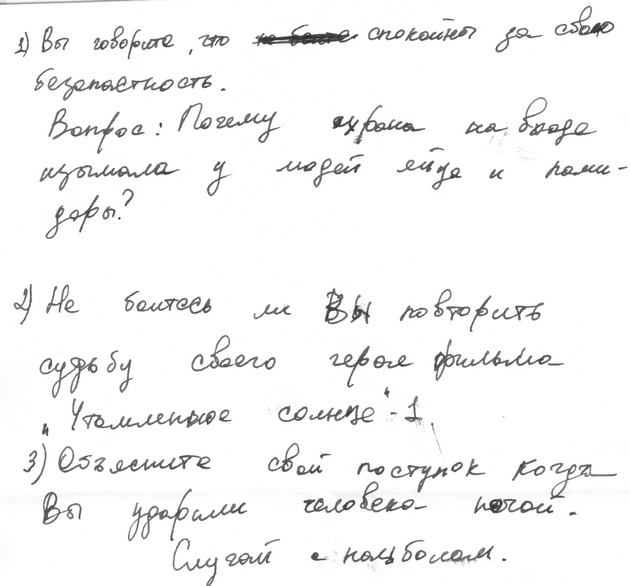 1) Вы говорите, что спокойны за свою
безопастность.
Вопрос: Почему охрана на входе
изымала у людей яйца и поми-
доры?
2) Не боитесь ли Вы повторить
судьбу своего героя фильма
„Утомленное солнце"-1.
3) Объясните свой поступок когда
Вы ударили человека ногой.
Случай с нацболом.